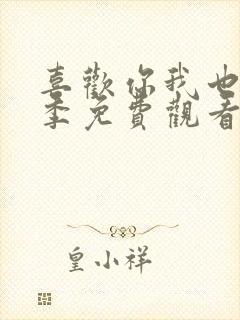 喜歡你我也
季免費觀看
皇小祥